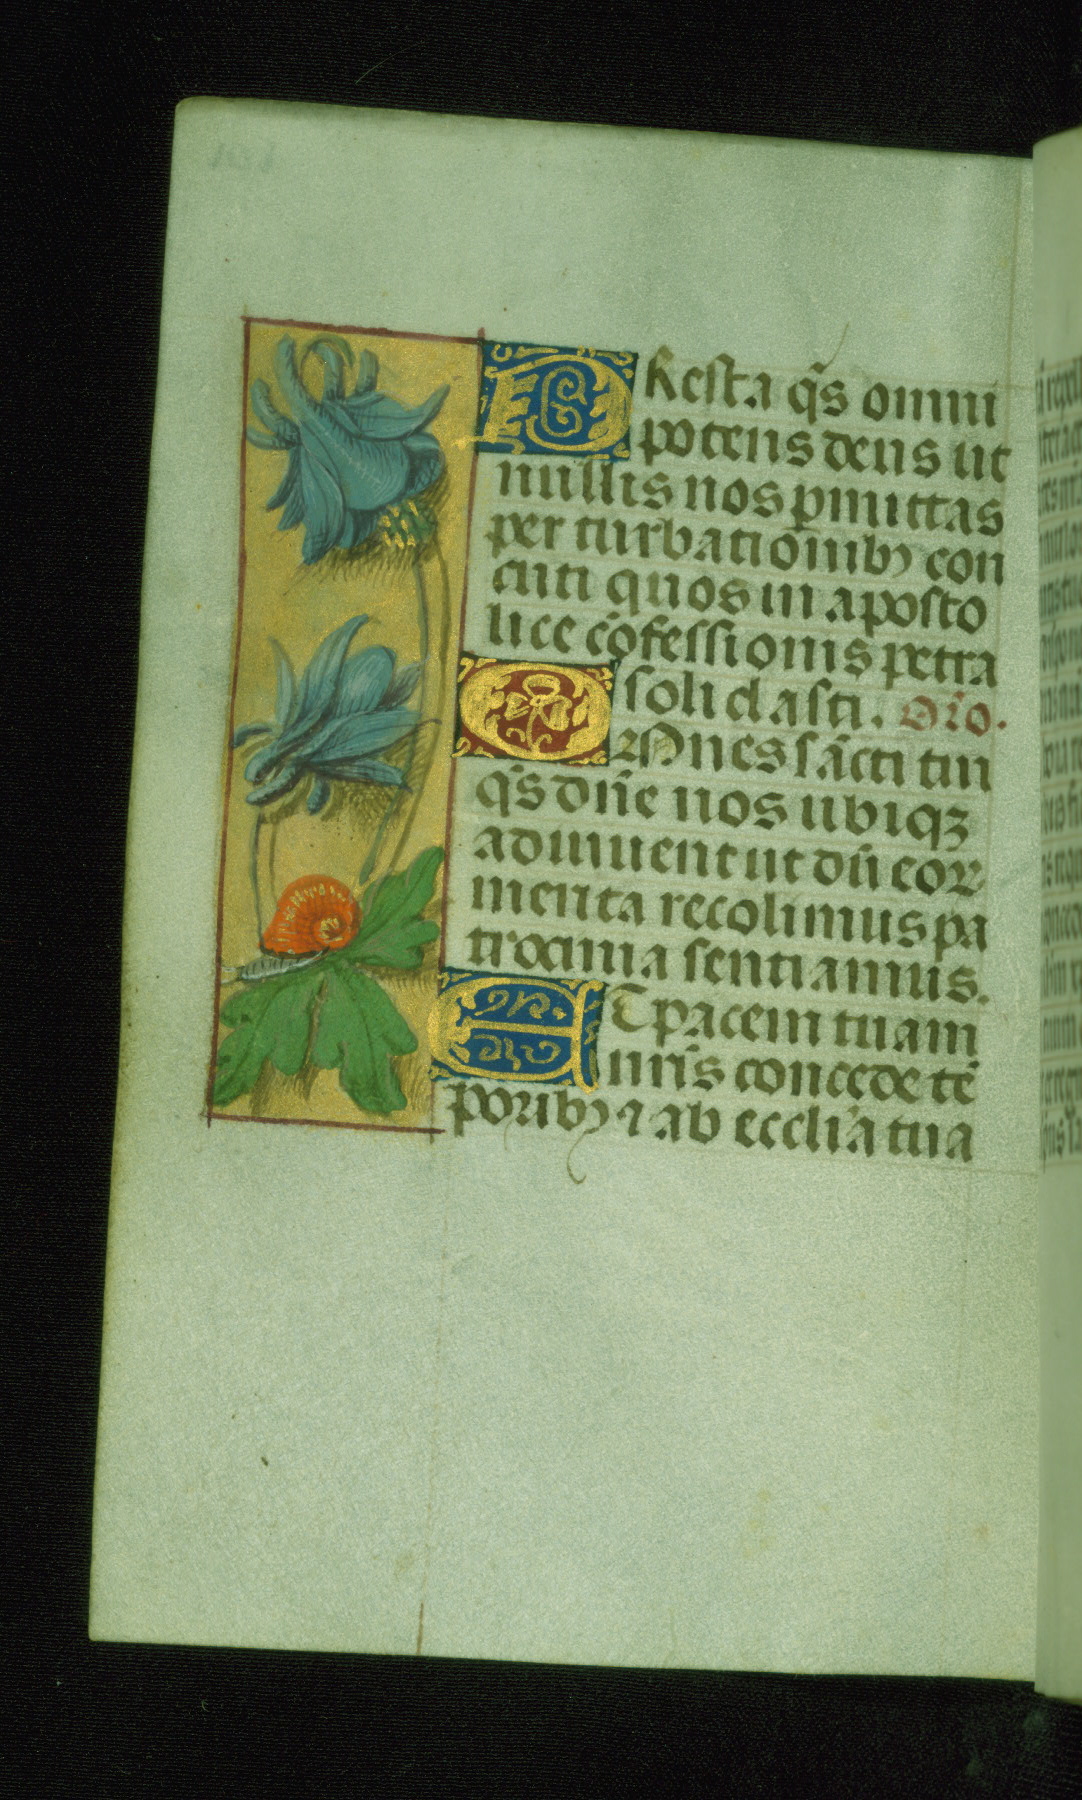 PResta q̃s omni
potens deus ut
nullis nos ꝑmittas
per turbationibꝫ con
cuti quos in aposto
lice cõfessionis petra
solidasti. Oro̅.
OMnes sãcti tui
q̃s dñe nos ubiqꝫ
adiuuent ut dũ eoꝝ
merita recolimus pa
trocinia sentiamus.
ET pacem tuam
nr̃is concede tẽ
poribꝫ ⁊ ab ecclia̅ tua